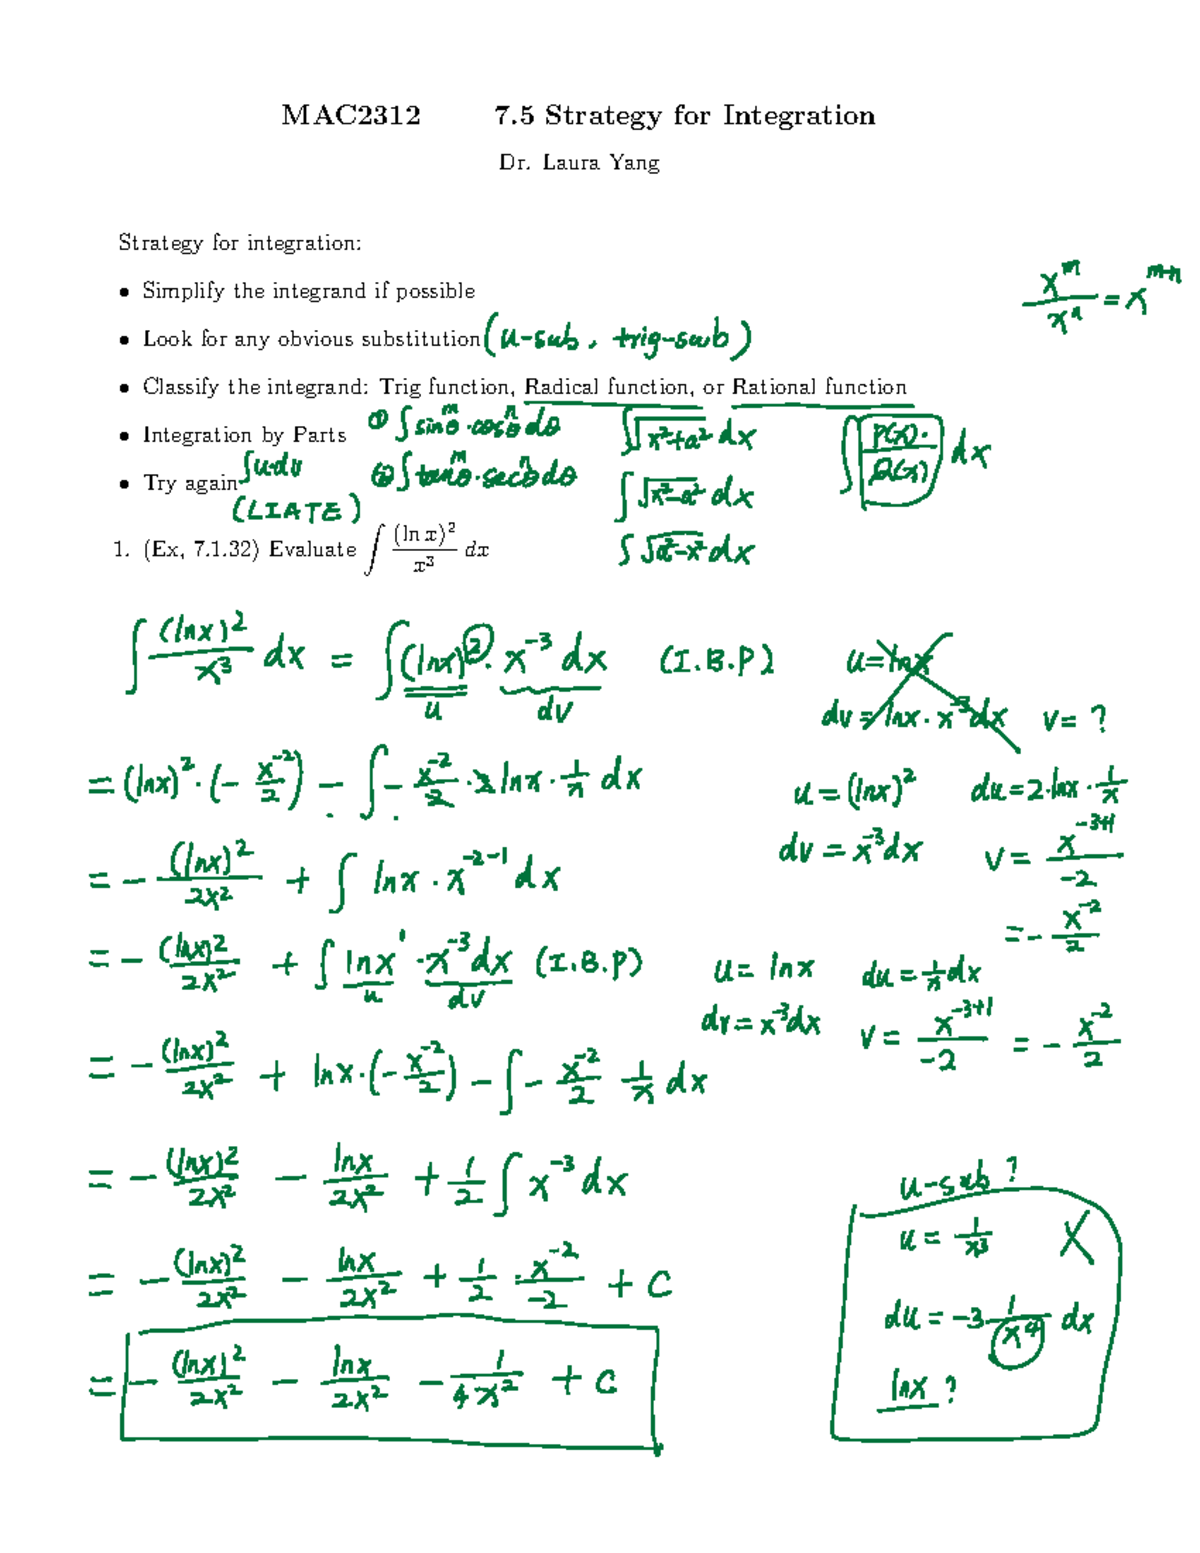 MAC2312 7.5 Strategy for Integration
Dr. Laura Yang
Strategy for integration:
• Simplify the integrand if possible
x^m / x^n = x^(m-n)
• Look for any obvious substitution (u-sub, trig-sub)
• Classify the integrand: Trig function, Radical function, or Rational function
• Integration by Parts
∫u·dv
① ∫ sin^m θ · cos^n θ dθ
② ∫ tan^m θ · sec^n θ dθ
∫ √(x²+a²) dx
∫ √(x²-a²) dx
∫ √(a²-x²) dx
∫ P(x)/Q(x) dx
• Try again
(LIATE)
1. (Ex, 7.1.32) Evaluate ∫ (ln x)²/x³ dx
∫ (lnx)²/x³ dx = ∫ (lnx)² · x^-3 dx (I.B.P)
u dv
u = lnx
dv = lnx · x^-3 dx v = ?
= (lnx)² · (- x^-2/2) - ∫ - x^-2/2 · 2 lnx · 1/x dx
u = (lnx)² du = 2·lnx · 1/x
dv = x^-3 dx v = x^(-3+1)/-2
= - x^-2/2
= - (lnx)²/2x² + ∫ lnx · x^(-2-1) dx
= - (lnx)²/2x² + ∫ lnx · x^-3 dx (I.B.P)
u dv
u = lnx du = 1/x dx
dv = x^-3 dx v = x^(-3+1)/-2 = - x^-2/2
= - (lnx)²/2x² + lnx · (- x^-2/2) - ∫ - x^-2/2 1/x dx
= - (lnx)²/2x² - lnx/2x² + 1/2 ∫ x^-3 dx
= - (lnx)²/2x² - lnx/2x² + 1/2 · x^-2/-2 + C
= - (lnx)²/2x² - lnx/2x² - 1/4x² + C
u-sub?
u = 1/x³ X
du = -3 1/x⁴ dx
lnx ?